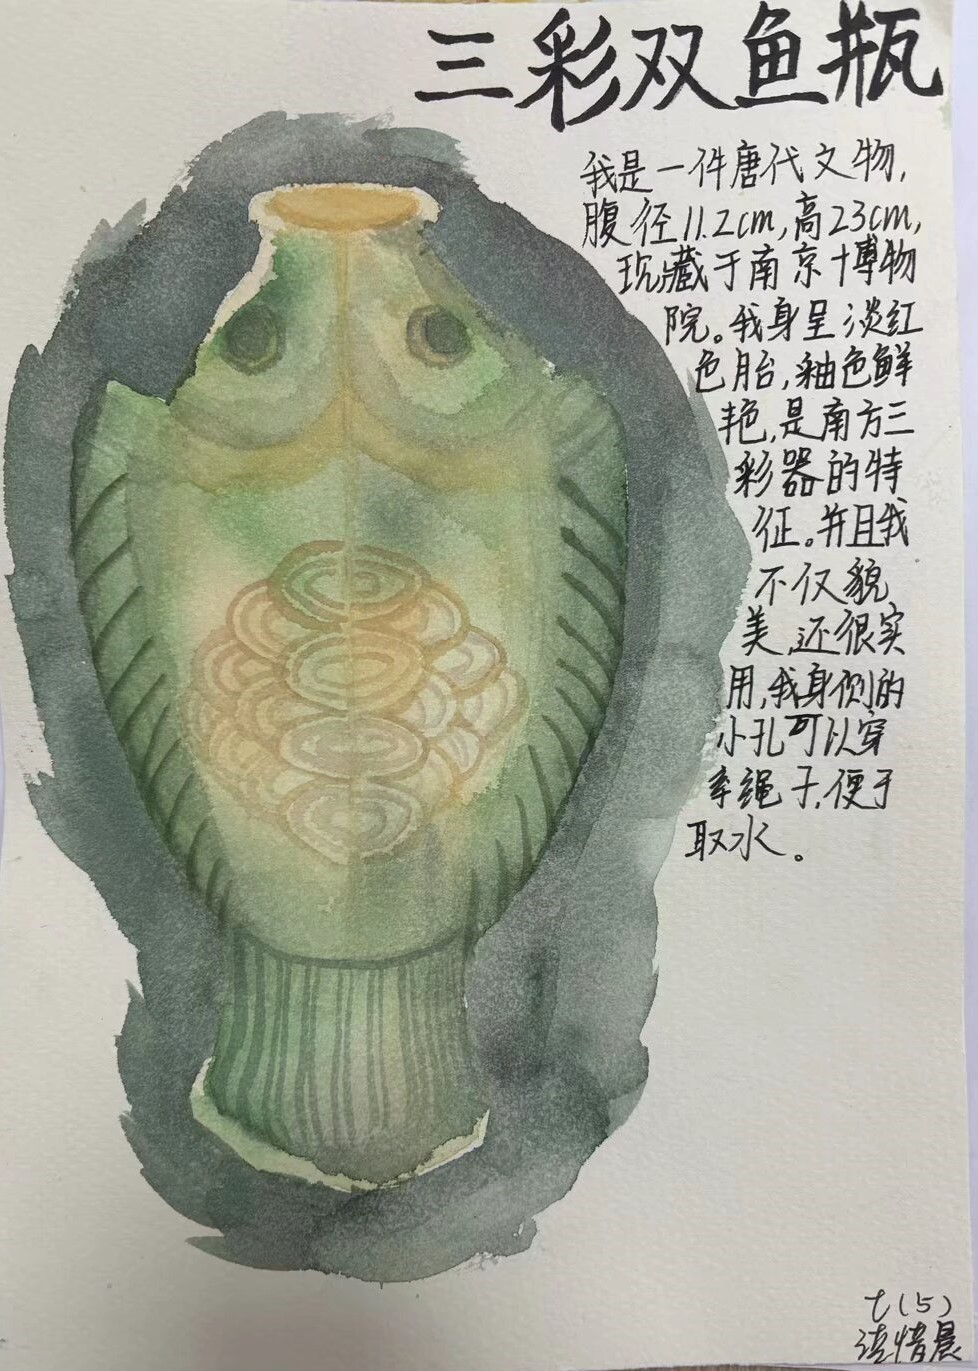 三彩双鱼瓶
我是一件唐代文物,
腹径11.2cm,高23cm,
现藏于南京博物
院。我身呈淡红
色胎,釉色鲜
艳,是南方三
彩器的特
征。并且我
不仅貌
美,还很实
用,我身侧的
小孔可以穿
牵绳子,便于
取水。
七(5)
惜晨